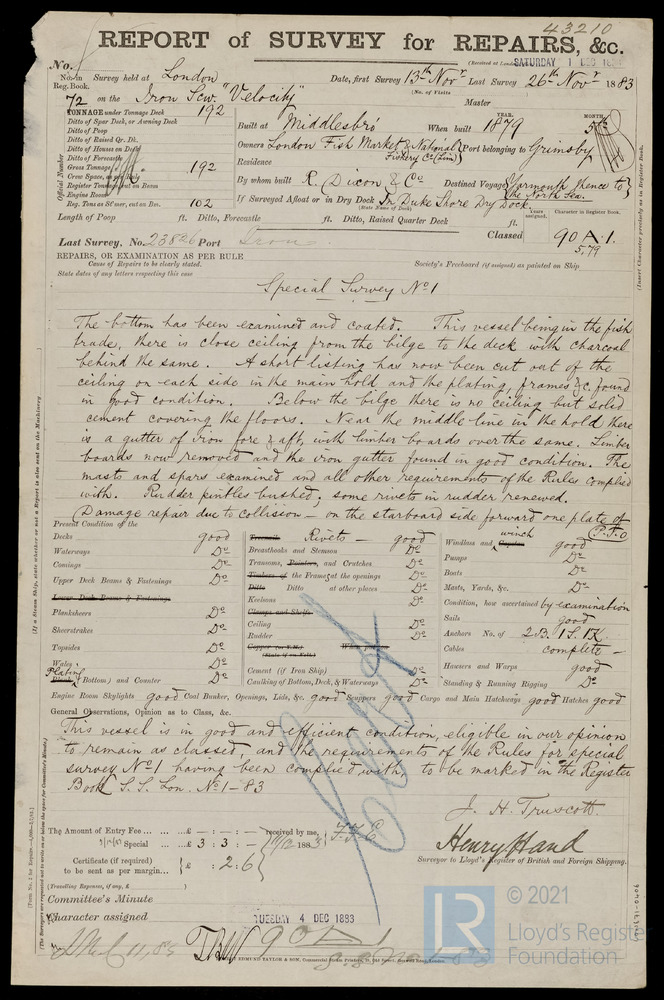 43210
REPORT of SURVEY for REPAIRS, &c.
No.
SATURDAY 1 DEC 18
No. in Reg. Book. Survey held at London Date, first Survey 13th Novr Last Survey 26th Novr 1883
(No. of Visits
72 on the Iron Scw. "Velocity" Master
TONNAGE under Tonnage Deck 192
Ditto of Spar Deck, or Awning Deck
Ditto of Poop
Ditto of Raised Qr. Dk.
Ditto of Houses on Deck
Ditto of Forecastle
Gross Tonnage 192
Crew Space,
Engine Room
Reg. Tons as St'mer, cut on Bm. 102
Official Number
Built at Middlesbro When built YEAR. 1879 MONTH. 5
Owners London Fish Market & National Fishery Co (Lim) Port belonging to Grimsby
Residence
By whom built R. Dixon & Co Destined Voyage Yarmouth thence to The North Sea.
If Surveyed Afloat or in Dry Dock In Duke Shore Dry Dock.
(State Name of Dock)
Length of Poop ft. Ditto, Forecastle ft. Ditto, Raised Quarter Deck ft.
Years assigned. Character in Register Book.
Last Survey, No. 23826 Port Iron Classed 90 A. 1.
5,79
REPAIRS, OR EXAMINATION AS PER RULE
Cause of Repairs to be clearly stated.
State dates of any letters respecting this case
Society's Freeboard (if assigned) as painted on Ship
Special Survey No 1
The bottom has been examined and coated. This vessel being in the fish
trade, there is close ceiling from the bilge to the deck with charcoal
behind the same. A short listing has now been cut out of the
ceiling on each side in the main hold and the plating, frames &c found
in good condition. Below the bilge there is no ceiling but solid
cement covering the floors. Near the middle line in the hold there
is a gutter of iron fore & aft, with limber boards over the same. Limber
boards now removed and the iron gutter found in good condition. The
masts and spars examined and all other requirements of the Rules complied
with. Rudder pintles bushed; some rivets in rudder renewed.
Damage repair due to collision — on the starboard side forward one plate of
P.T.O
Present Condition of the
Decks good
Waterways Do
Comings Do
Upper Deck Beams & Fastenings Do
Lower Deck Beams & Fastenings
Planksheers Do
Sheerstrakes Do
Topsides Do
Wales Do
Plating (Bottom) and Counter Do
Rivets — good
Breasthooks and Stemson Do
Transoms, Pointers, and Crutches Do
Timbers of the Frames at the openings Do
Ditto Ditto at other places Do
Keelsons Do
Clamps and Shelfs
Ceiling Do
Rudder Do
Copper (or Y.M.)
(State if on Felt.)
Cement (if Iron Ship) Do
Caulking of Bottom, Deck, & Waterways Do
Windlass and winch good
Pumps Do
Boats Do
Masts, Yards, &c. Do
Condition, how ascertained by examination
Sails good
Anchors No. of 2 B. 1 S. 1 K.
Cables complete —
Hawsers and Warps good
Standing & Running Rigging Do
Engine Room Skylights good Coal Bunker, Openings, Lids, &c. good Scuppers good Cargo and Main Hatchways good Hatches good
General Observations, Opinion as to Class, &c.
This vessel is in good and efficient condition, eligible in our opinion
to remain as classed, and the requirements of the Rules for special
survey No 1 having been complied with, to be marked in the Register
Book S. S. Lon. No 1 - 83
J. H. Truscott.
Henry Hand
Surveyor to Lloyd's Register of British and Foreign Shipping.
The Amount of Entry Fee ... £ - : - : - received by me,
Special ... £ 3 : 3 : - 1883
Certificate (if required) to be sent as per margin... £ : 2:6
(Travelling Expenses, if any, £ )
Committee's Minute
Character assigned TUESDAY 4 DEC 1883
90 A 1
EDMUND TAYLOR & SON,
© 2021
Lloyd's Register
Foundation
LR